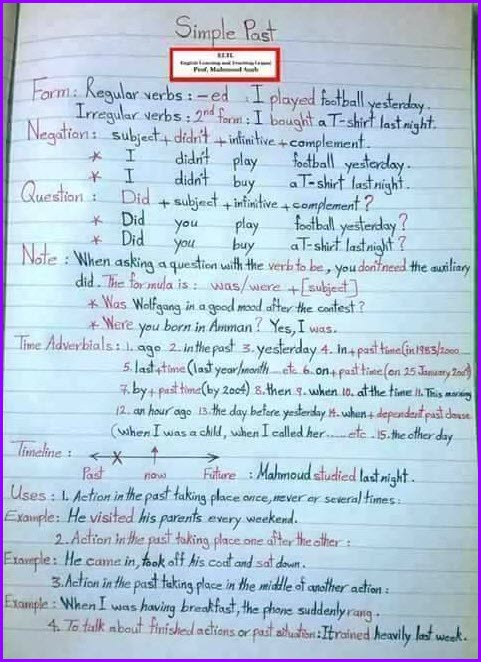 Simple Past
ELTL
English Learning and Teaching Lounge
Prof. Mahmoud Arab
Form: Regular verbs: -ed : I played football yesterday.
Irregular verbs: 2nd form: I bought a T-shirt last night.
Negation: subject + didn't + infinitive + complement.
* I didn't play football yesterday.
* I didn't buy a T-shirt last night.
Question: Did + subject + infinitive + complement?
* Did you play football yesterday?
* Did you buy a T-shirt last night?
Note: When asking a question with the verb to be, you don't need the auxiliary
did. The formula is: was/were + [subject]
* Was Wolfgang in a good mood after the contest?
* Were you born in Amman? Yes, I was.
Time Adverbials: 1. ago 2. in the past 3. yesterday 4. in + past time (in 1983/2000 ....
5. last + time (last year/month ... etc 6. on + past time (on 25 January 2009)
7. by + past time (by 2004) 8. then 9. when 10. at the time 11. This morning
12. an hour ago 13. the day before yesterday 14. when + dependent past clause
(when I was a child, when I called her ...... etc . 15. the other day
Timeline:
Past now Future : Mahmoud studied last night.
Uses: 1. Action in the past taking place once, never or several times:
Example: He visited his parents every weekend.
2. Action in the past taking place one after the other:
Example: He came in, took off his coat and sat down.
3. Action in the past taking place in the middle of another action:
Example: When I was having breakfast, the phone suddenly rang.
4. To talk about finished actions or past situation: It rained heavily last week.